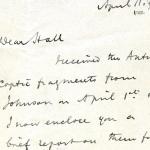 April 11.
Dear Hall
received the Anti
Coptic fragments from
Johnson on April 1st
I now enclose you a
brief report on them f